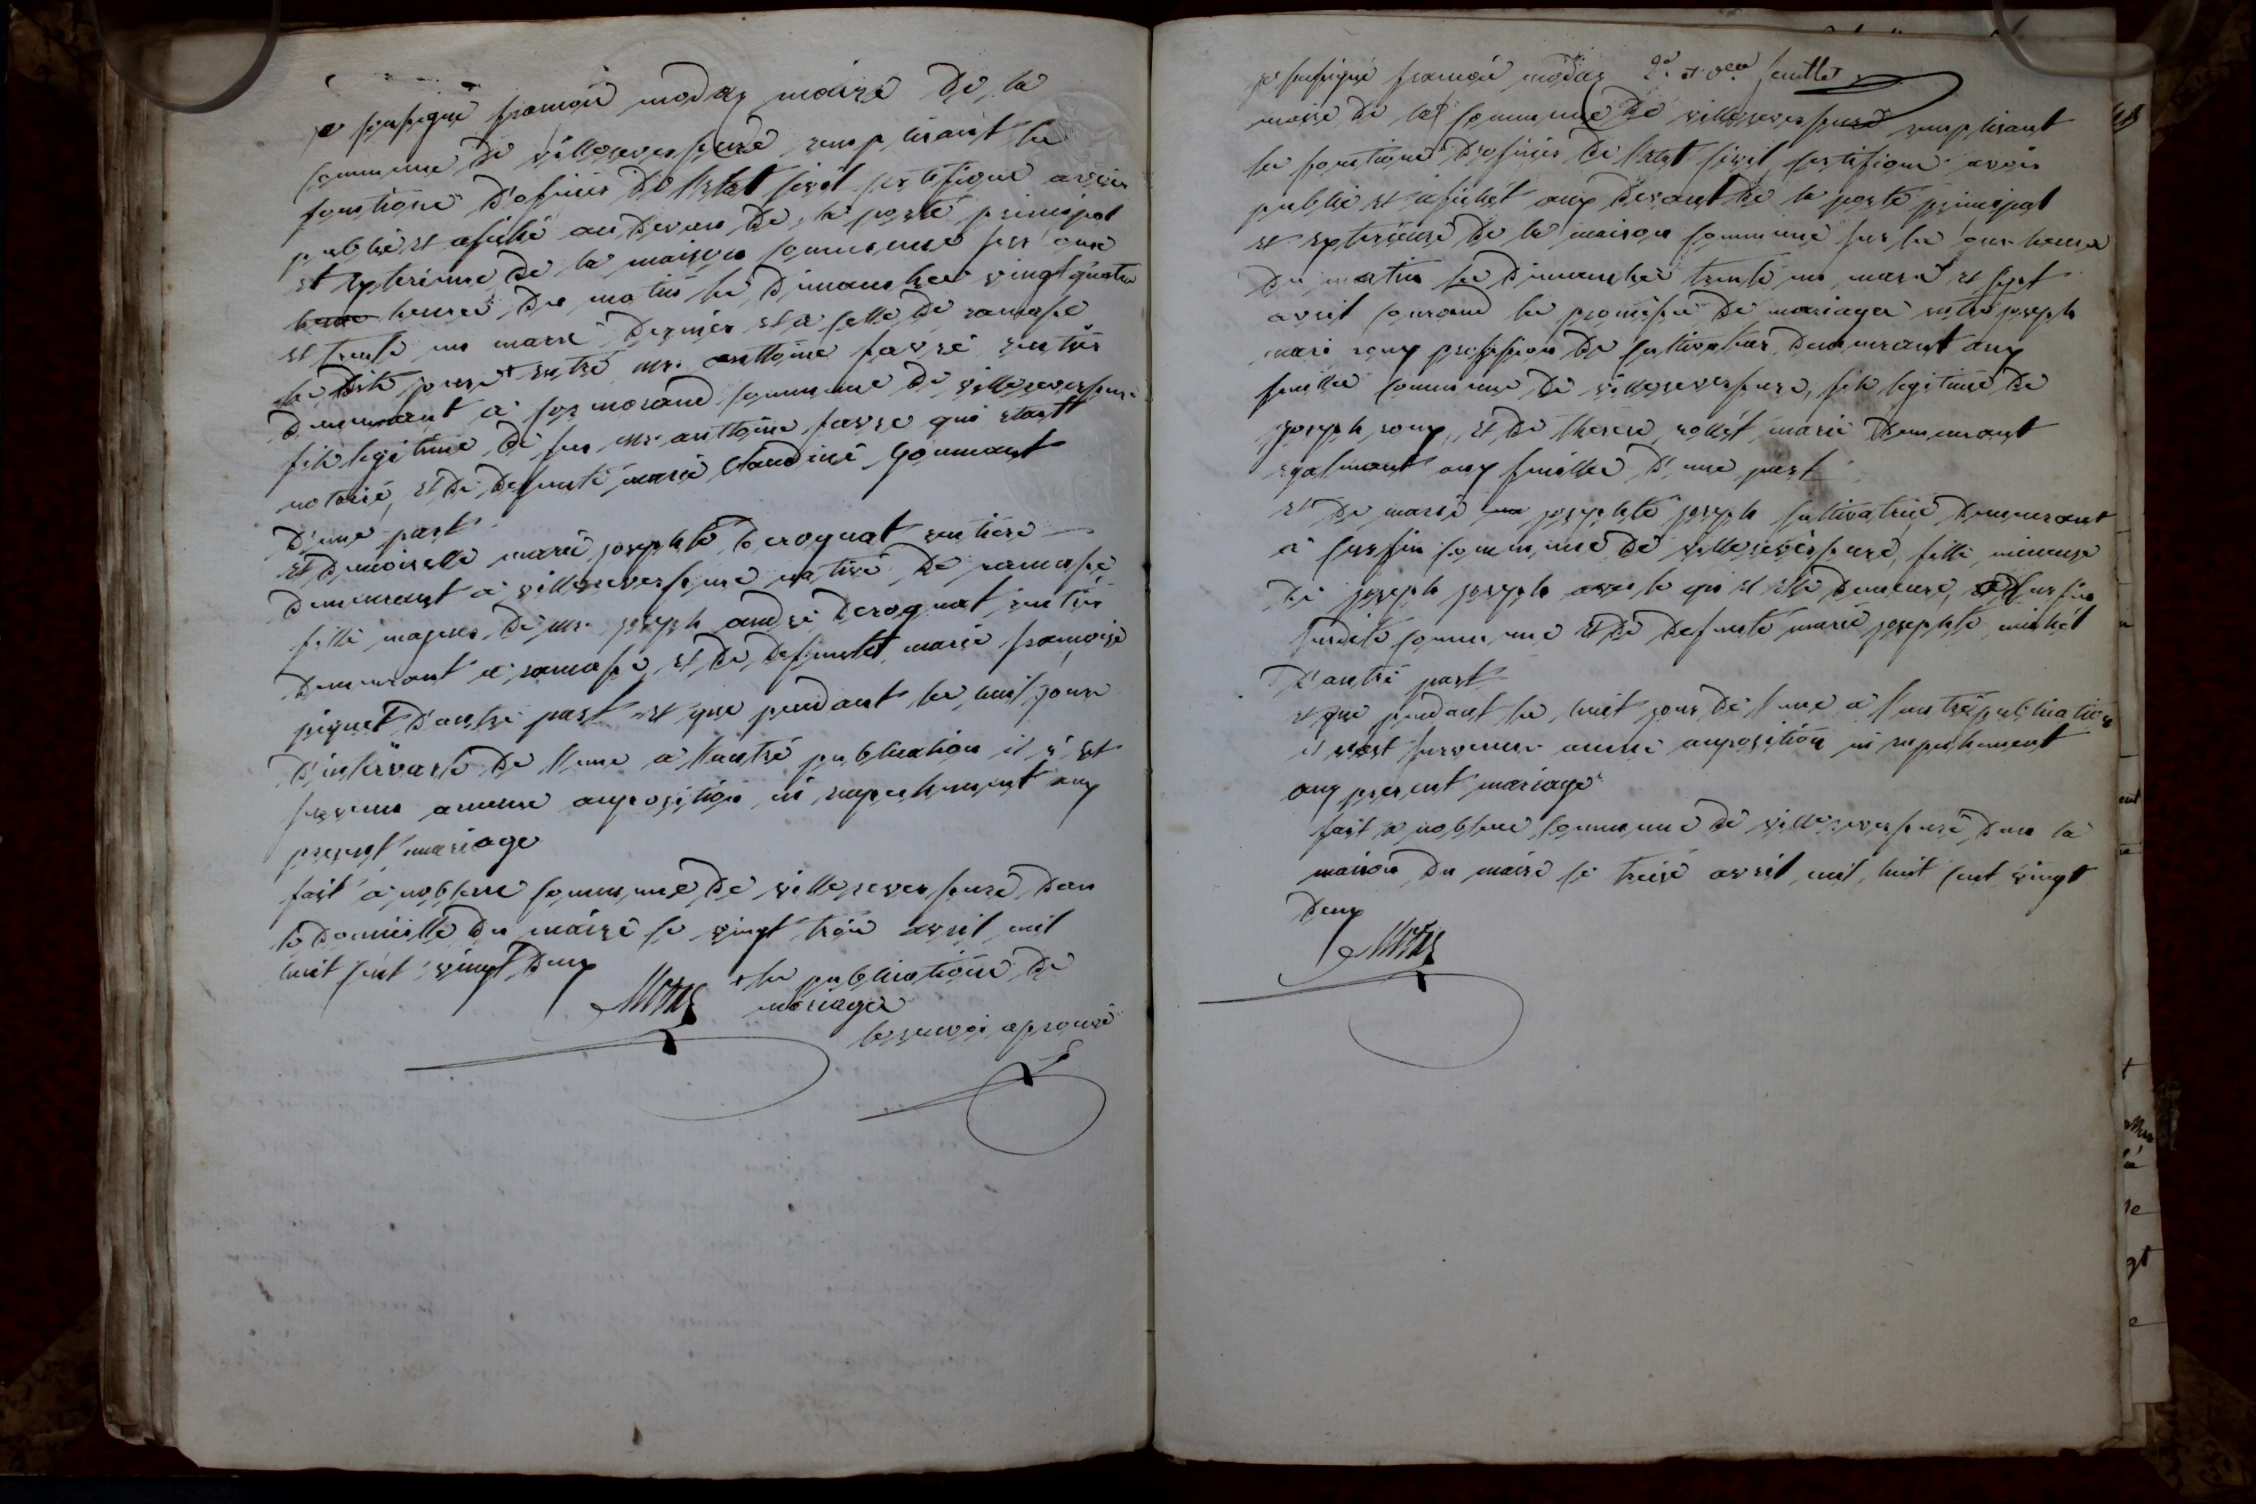 je sousigné francois modas maire de la
commune de villereversure remplisant les
fonctions d'oficier de l'etat sivil sertifique avoir
publié et afiché au devan de la porte principal
et exterieure de la maison commune sur onze
heures du matin les dimanches vingt quatre
et trente un mars dernier et a selle de ramasse
les dits jours + entre mr. anttoine favre rentier
demeurant a commune de villereversure
fils legitime de feu mr. anttoine favre qui etait
notaire, et de defunte marie claudine gounant
d'une part
et demoiselle marie josephte derognat rentiere
demeurant a villereversure native de ramasse
fille majeur de mr. joseph andré derognat rentier
demeurant a ramasse et de defuntet marie francoise
piquet d'autre part et que pendant les huit jours
d'intervale de l'une a l'autre publication il n'est
survenu aucune auposition ni empechement aux
present mariage
fait a noblens commune de villereversure dans
le domicille du maire le vingt trois avril mil
huit sent vingt deux
+ les publications de
mariages
le renvoi aprouvé
je sousigné francois modas 2e et feuillet
maire de la commune de villereversure remplisant
les fonctions d'oficier de l'etat sivil sertifique avoir
publié et afichét aux devant de la porte principal
et exterieure de la maison commune sur les onze heures
du matin les dimanches trente un mars et sept
avril courand les promesses de mariages entre joseph
marie roux profession de cultivateur demeurant aux
feuilles commune de villereversure, fils legitime de
joseph roux, et de therese rollét mariés demeurant
egalmant aux feuilles d'une part
et de marie josephte joseph cultivatrice demeurant
a commune de villereversure, fille mineure
de joseph joseph avec le qui et elle demeure,
susdite commune et de defunte marie josephte michét
d'autre part
et que pendant les huit jours de l'une a l'autre publication
il n'est survenu aucune auposition ni empechement
aux present mariage
fait a noblens commune de villereversure dans la
maison du maire le treise avril mil huit sent vingt
deux